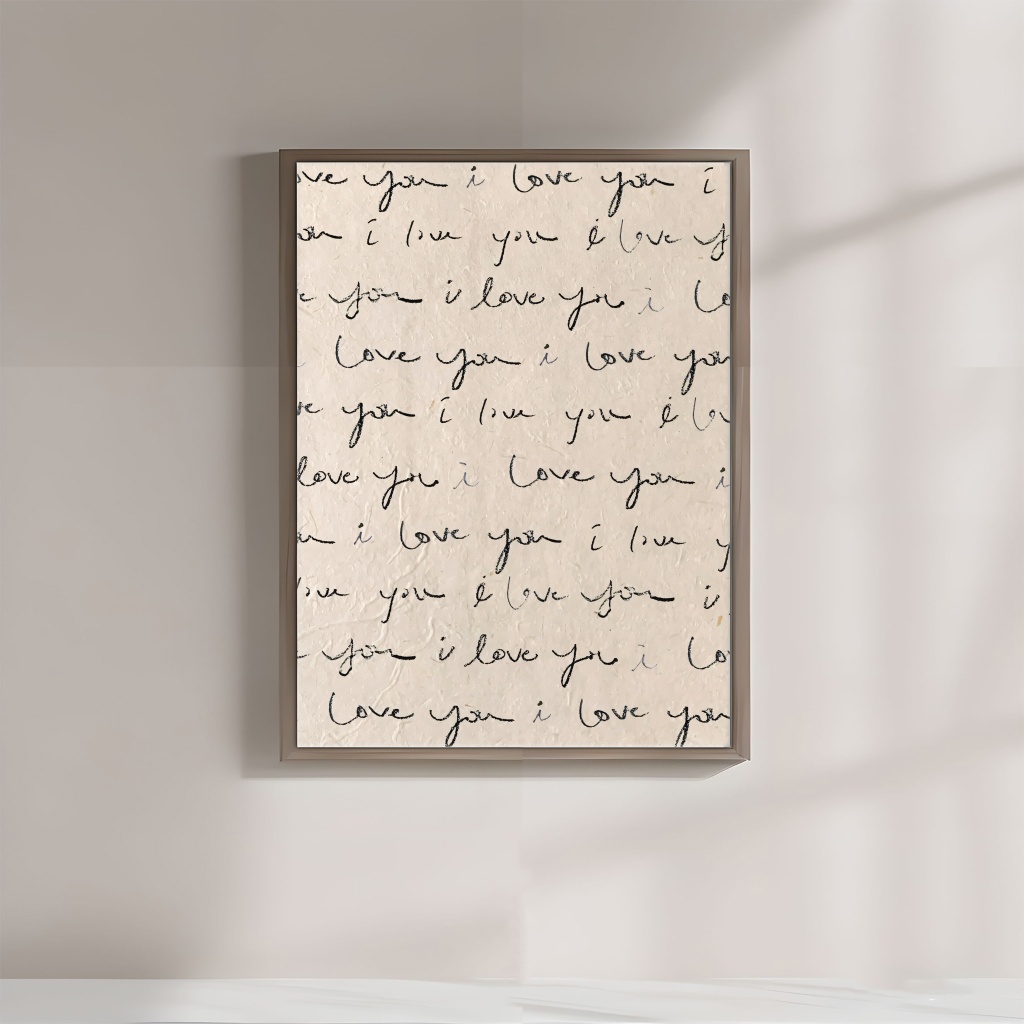 ove you i love you i
ou i love you i love y
e you i love you i lo
love you i love you
ve you i love you i lov
love you i love you i
u i love you i love y
love you i love you i
you i love you i lo
love you i love you